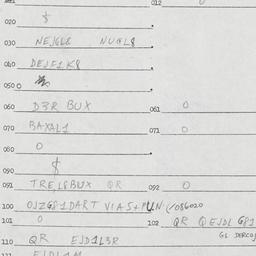 012 0
020 $
030 NEJGL8 NUGL8
040 DEJF1K8
050 0
060 D3R BUX 061 0
070 BAXAL1 071 0
080 0
090 $
091 TREL8BUX QR 092 0
100 OJZG81DART VIA5+PUN (/086020
101 0 102 QR QEJDL G81
GL DERCOJ
110 QR EJD1L3R